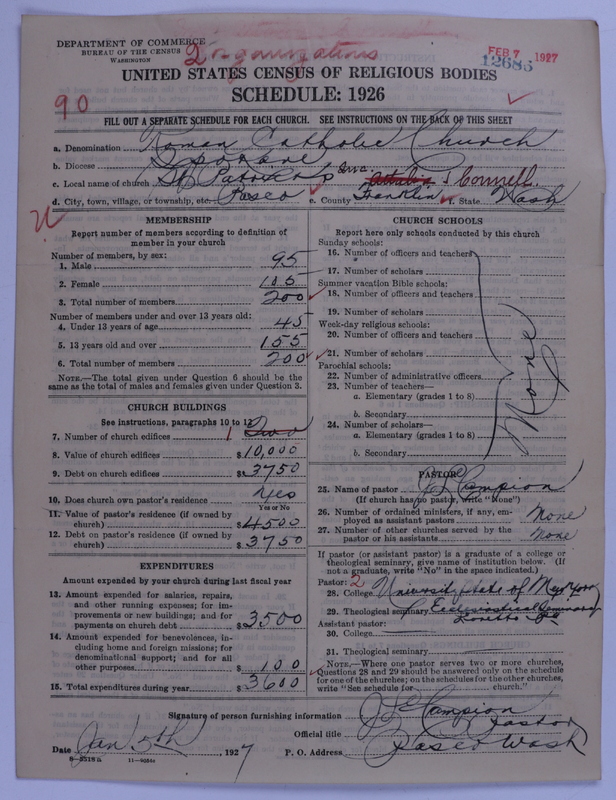 DEPARTMENT OF COMMERCE
BUREAU OF THE CENSUS
WASHINGTON
2 organizations
FEB 7 1927
12685
UNITED STATES CENSUS OF RELIGIOUS BODIES
SCHEDULE: 1926
90
FILL OUT A SEPARATE SCHEDULE FOR EACH CHURCH. SEE INSTRUCTIONS ON THE BACK OF THIS SHEET
a. Denomination Roman Catholic Church
b. Diocese Spokane
c. Local name of church St Patrick's Connell
d. City, town, village, or township, etc. Pasco e. County Franklin f. State Wash
MEMBERSHIP
Report number of members according to definition of member in your church
Number of members, by sex:
1. Male 95
2. Female 105
3. Total number of members 200
Number of members under and over 13 years old:
4. Under 13 years of age 45
5. 13 years old and over 155
6. Total number of members 200
NOTE.—The total given under Question 6 should be the same as the total of males and females given under Question 3.
CHURCH BUILDINGS
See instructions, paragraphs 10 to 12
7. Number of church edifices 1 Two
8. Value of church edifices $10,000
9. Debt on church edifices $3750
10. Does church own pastor's residence Yes
Yes or No
11. Value of pastor's residence (if owned by church) $4500
12. Debt on pastor's residence (if owned by church) $3750
EXPENDITURES
Amount expended by your church during last fiscal year
13. Amount expended for salaries, repairs, and other running expenses; for improvements or new buildings; and for payments on church debt $3500
14. Amount expended for benevolences, including home and foreign missions; for denominational support; and for all other purposes $100
15. Total expenditures during year $3600
CHURCH SCHOOLS
Report here only schools conducted by this church
Sunday schools:
16. Number of officers and teachers
17. Number of scholars
Summer vacation Bible schools:
18. Number of officers and teachers
19. Number of scholars
Week-day religious schools:
20. Number of officers and teachers
21. Number of scholars
Parochial schools:
22. Number of administrative officers
23. Number of teachers—
a. Elementary (grades 1 to 8)
b. Secondary
24. Number of scholars—
a. Elementary (grades 1 to 8)
b. Secondary
None
PASTOR
25. Name of pastor J Campion
(If church has no pastor, write "None")
26. Number of ordained ministers, if any, employed as assistant pastors None
27. Number of other churches served by the pastor or his assistants None
If pastor (or assistant pastor) is a graduate of a college or theological seminary, give name of institution below. (If not a graduate, write "No" in the space indicated.)
Pastor: 2
28. College University state of New York
29. Theological seminary Ecclesiastical Seminary
Loretto Pa
Assistant pastor:
30. College
31. Theological seminary
NOTE.—Where one pastor serves two or more churches, Questions 28 and 29 should be answered only on the schedule for one of the churches; on the schedules for the other churches, write "See schedule for church."
Signature of person furnishing information J Campion
Official title Pastor
Date Jan 5th, 1927 P. O. Address Pasco Wash
11—9056